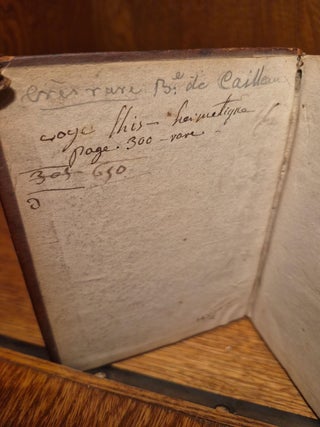 très rare Bᵉ de Cailleau
voye l'his - hermetique
page. 300 - rare
305 - 650
D